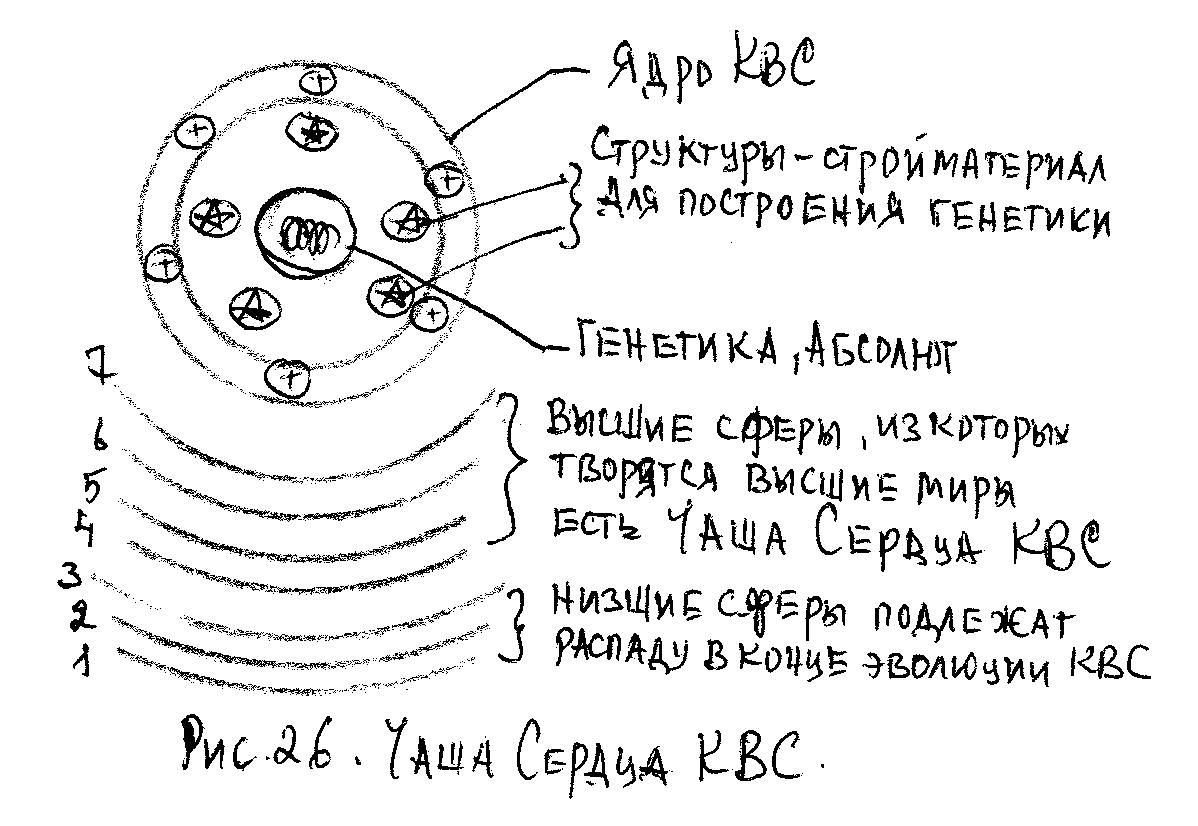 Ядро КВС
Структуры-стройматериал
для построения генетики
Генетика, Абсолют
7
6
5
4
3
2
1
Высшие сферы, из которых
творятся высшие миры
есть Чаша Сердца КВС
Низшие сферы подлежат
распаду в конце эволюции КВС
Рис. 26. Чаша Сердца КВС.